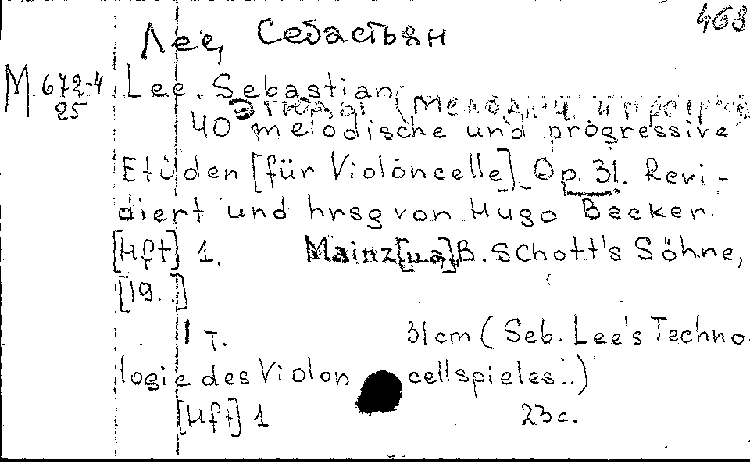 468
Лее, Себастьян
М 672-4
25
Lee. Sebastian.
Этюды (мелодич. и прогрес
40 melodische und progressive
Etüden [für Violoncelle]. Op. 31. Revi-
diert und hrsg von Hugo Becker.
[Hft] 1. Mainz [u.a.] B. Schott's Söhne,
[19..]
1 т. 31cm (Seb. Lee's Techno-
logie des Violoncellspieles..)
[Hft] 1 23c.